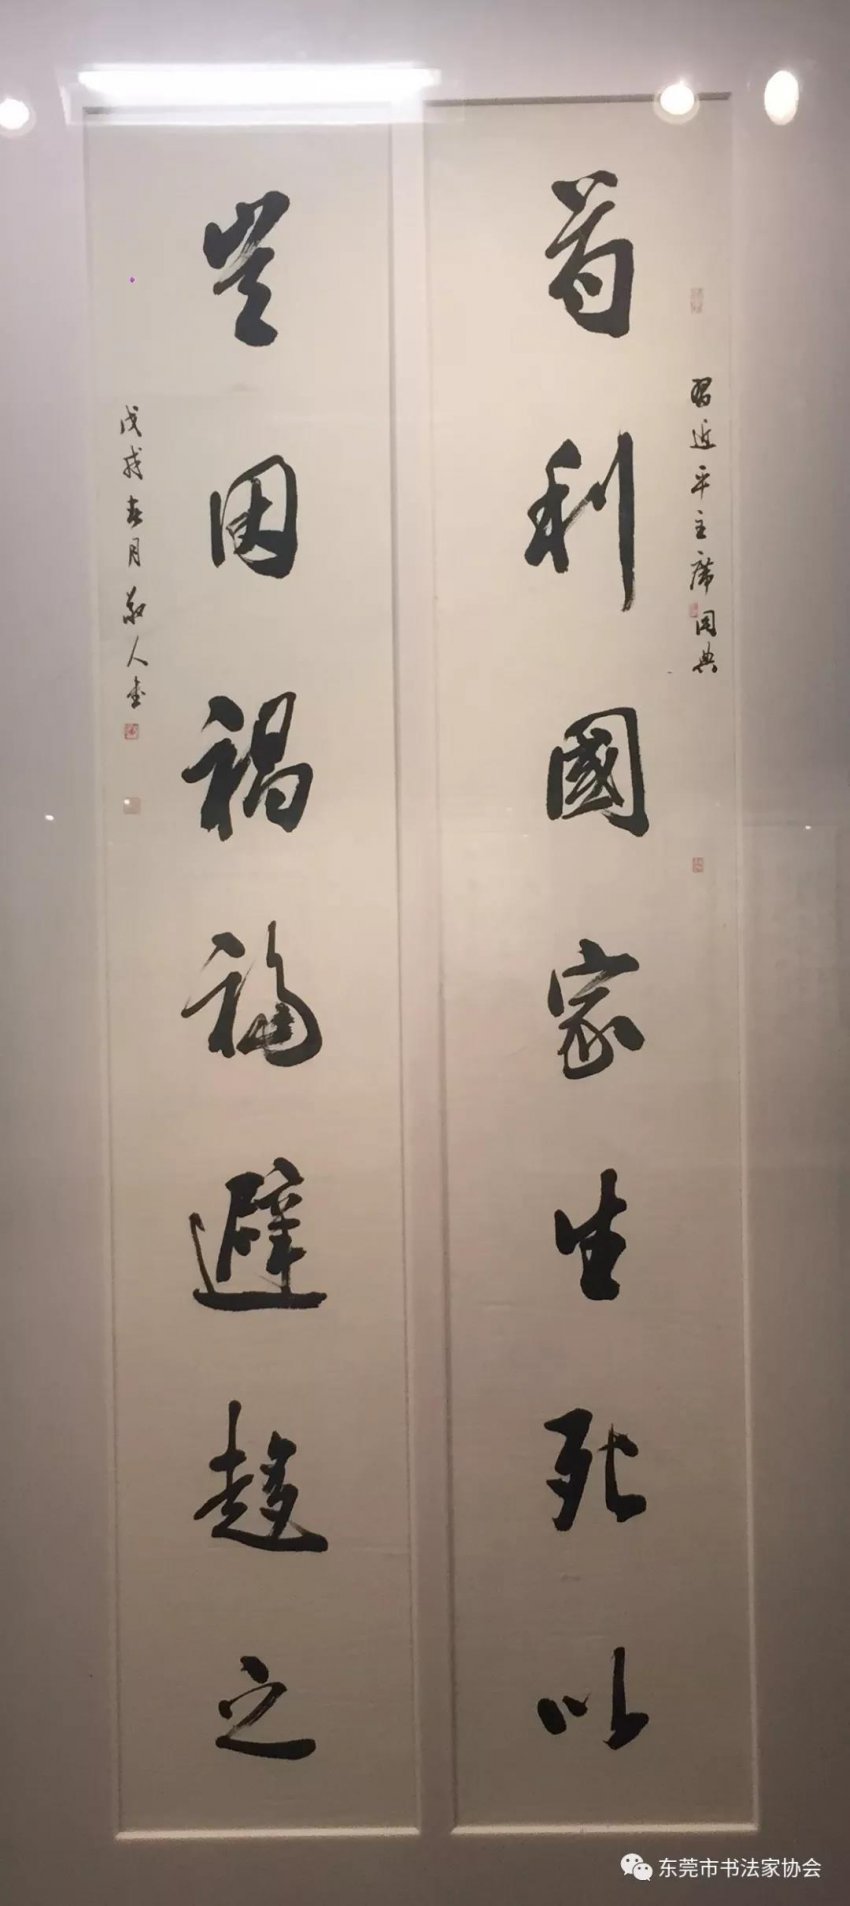 習近平主席用典
苟利國家生死以
豈因禍福避趨之
戊戌春月敬人書
东莞市书法家协会